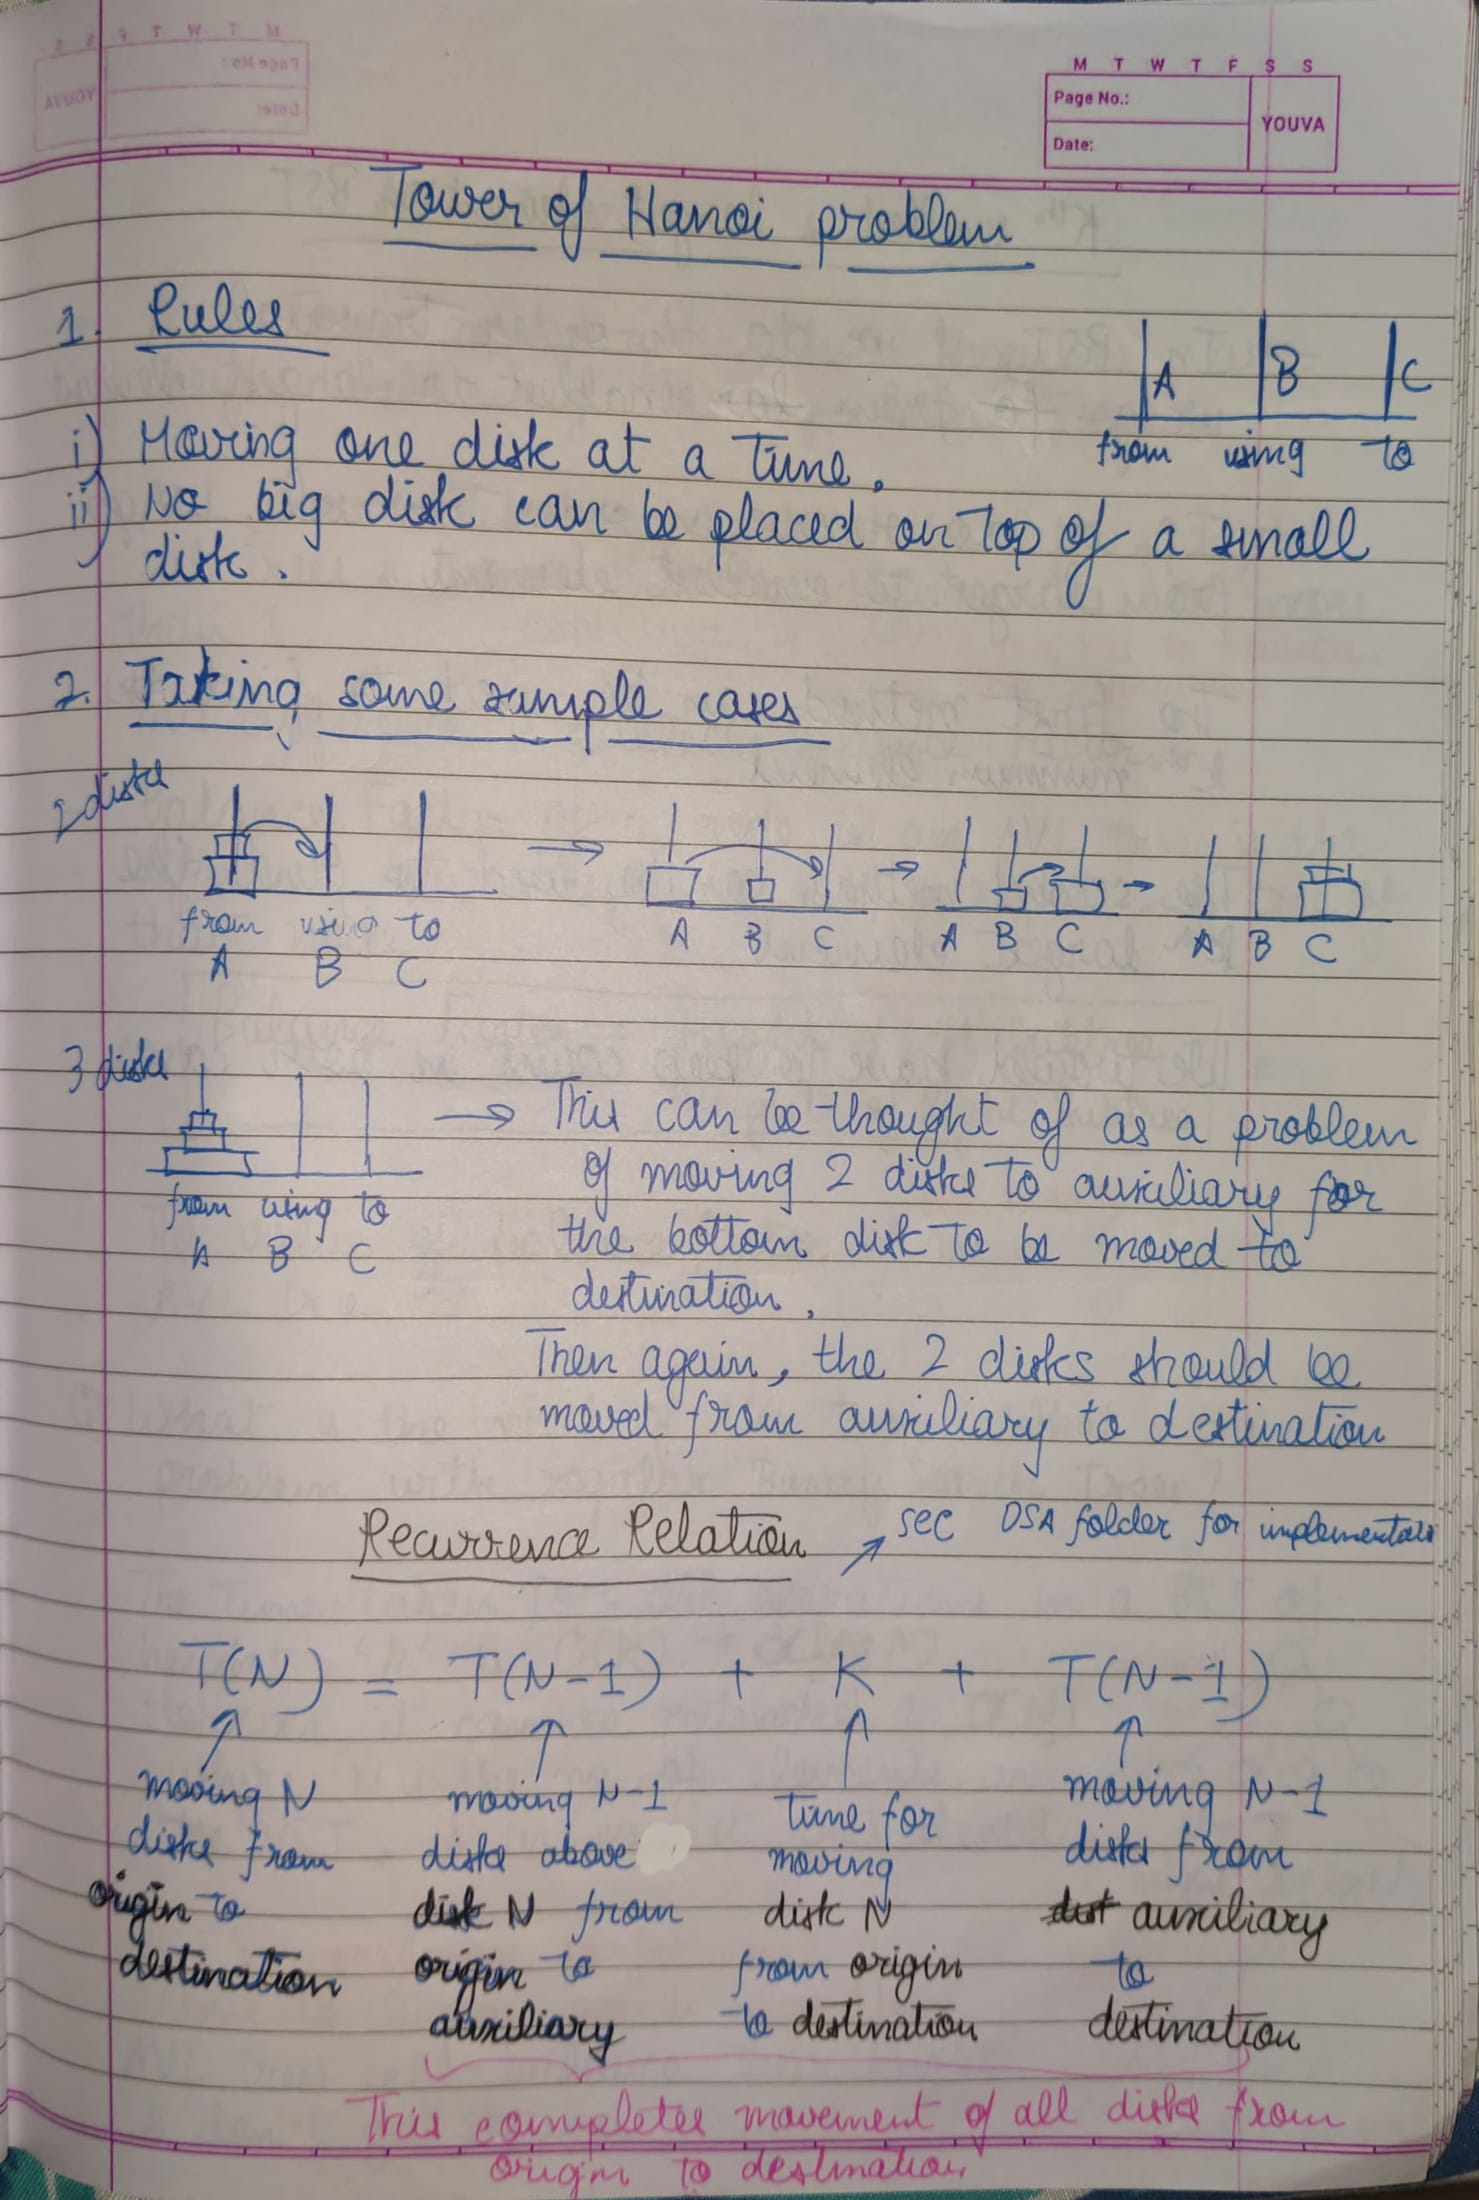 M T W T F S S
Page No.:
YOUVA
Date:
Tower of Hanoi problem
1. Rules
A B C
from using to
i) Moving one disk at a time.
ii) No big disk can be placed on top of a small
disk.
2. Taking some sample cases
2 disks
from using to
A B C
A B C
A B C
A B C
3 disks
from using to
A B C
→ This can be thought of as a problem
of moving 2 disks to auxiliary for
the bottom disk to be moved to
destination.
Then again, the 2 disks should be
moved from auxiliary to destination
Recurrence Relation
see DSA folder for
T(N) = T(N-1) + K + T(N-1)
moving N
disks from
origin to
destination
moving N-1
disks above
disk N from
origin to
auxiliary
time for
moving
disk N
from origin
to destination
moving N-1
disks from
auxiliary
to
destination
This completes movement of all disks from
origin to destination